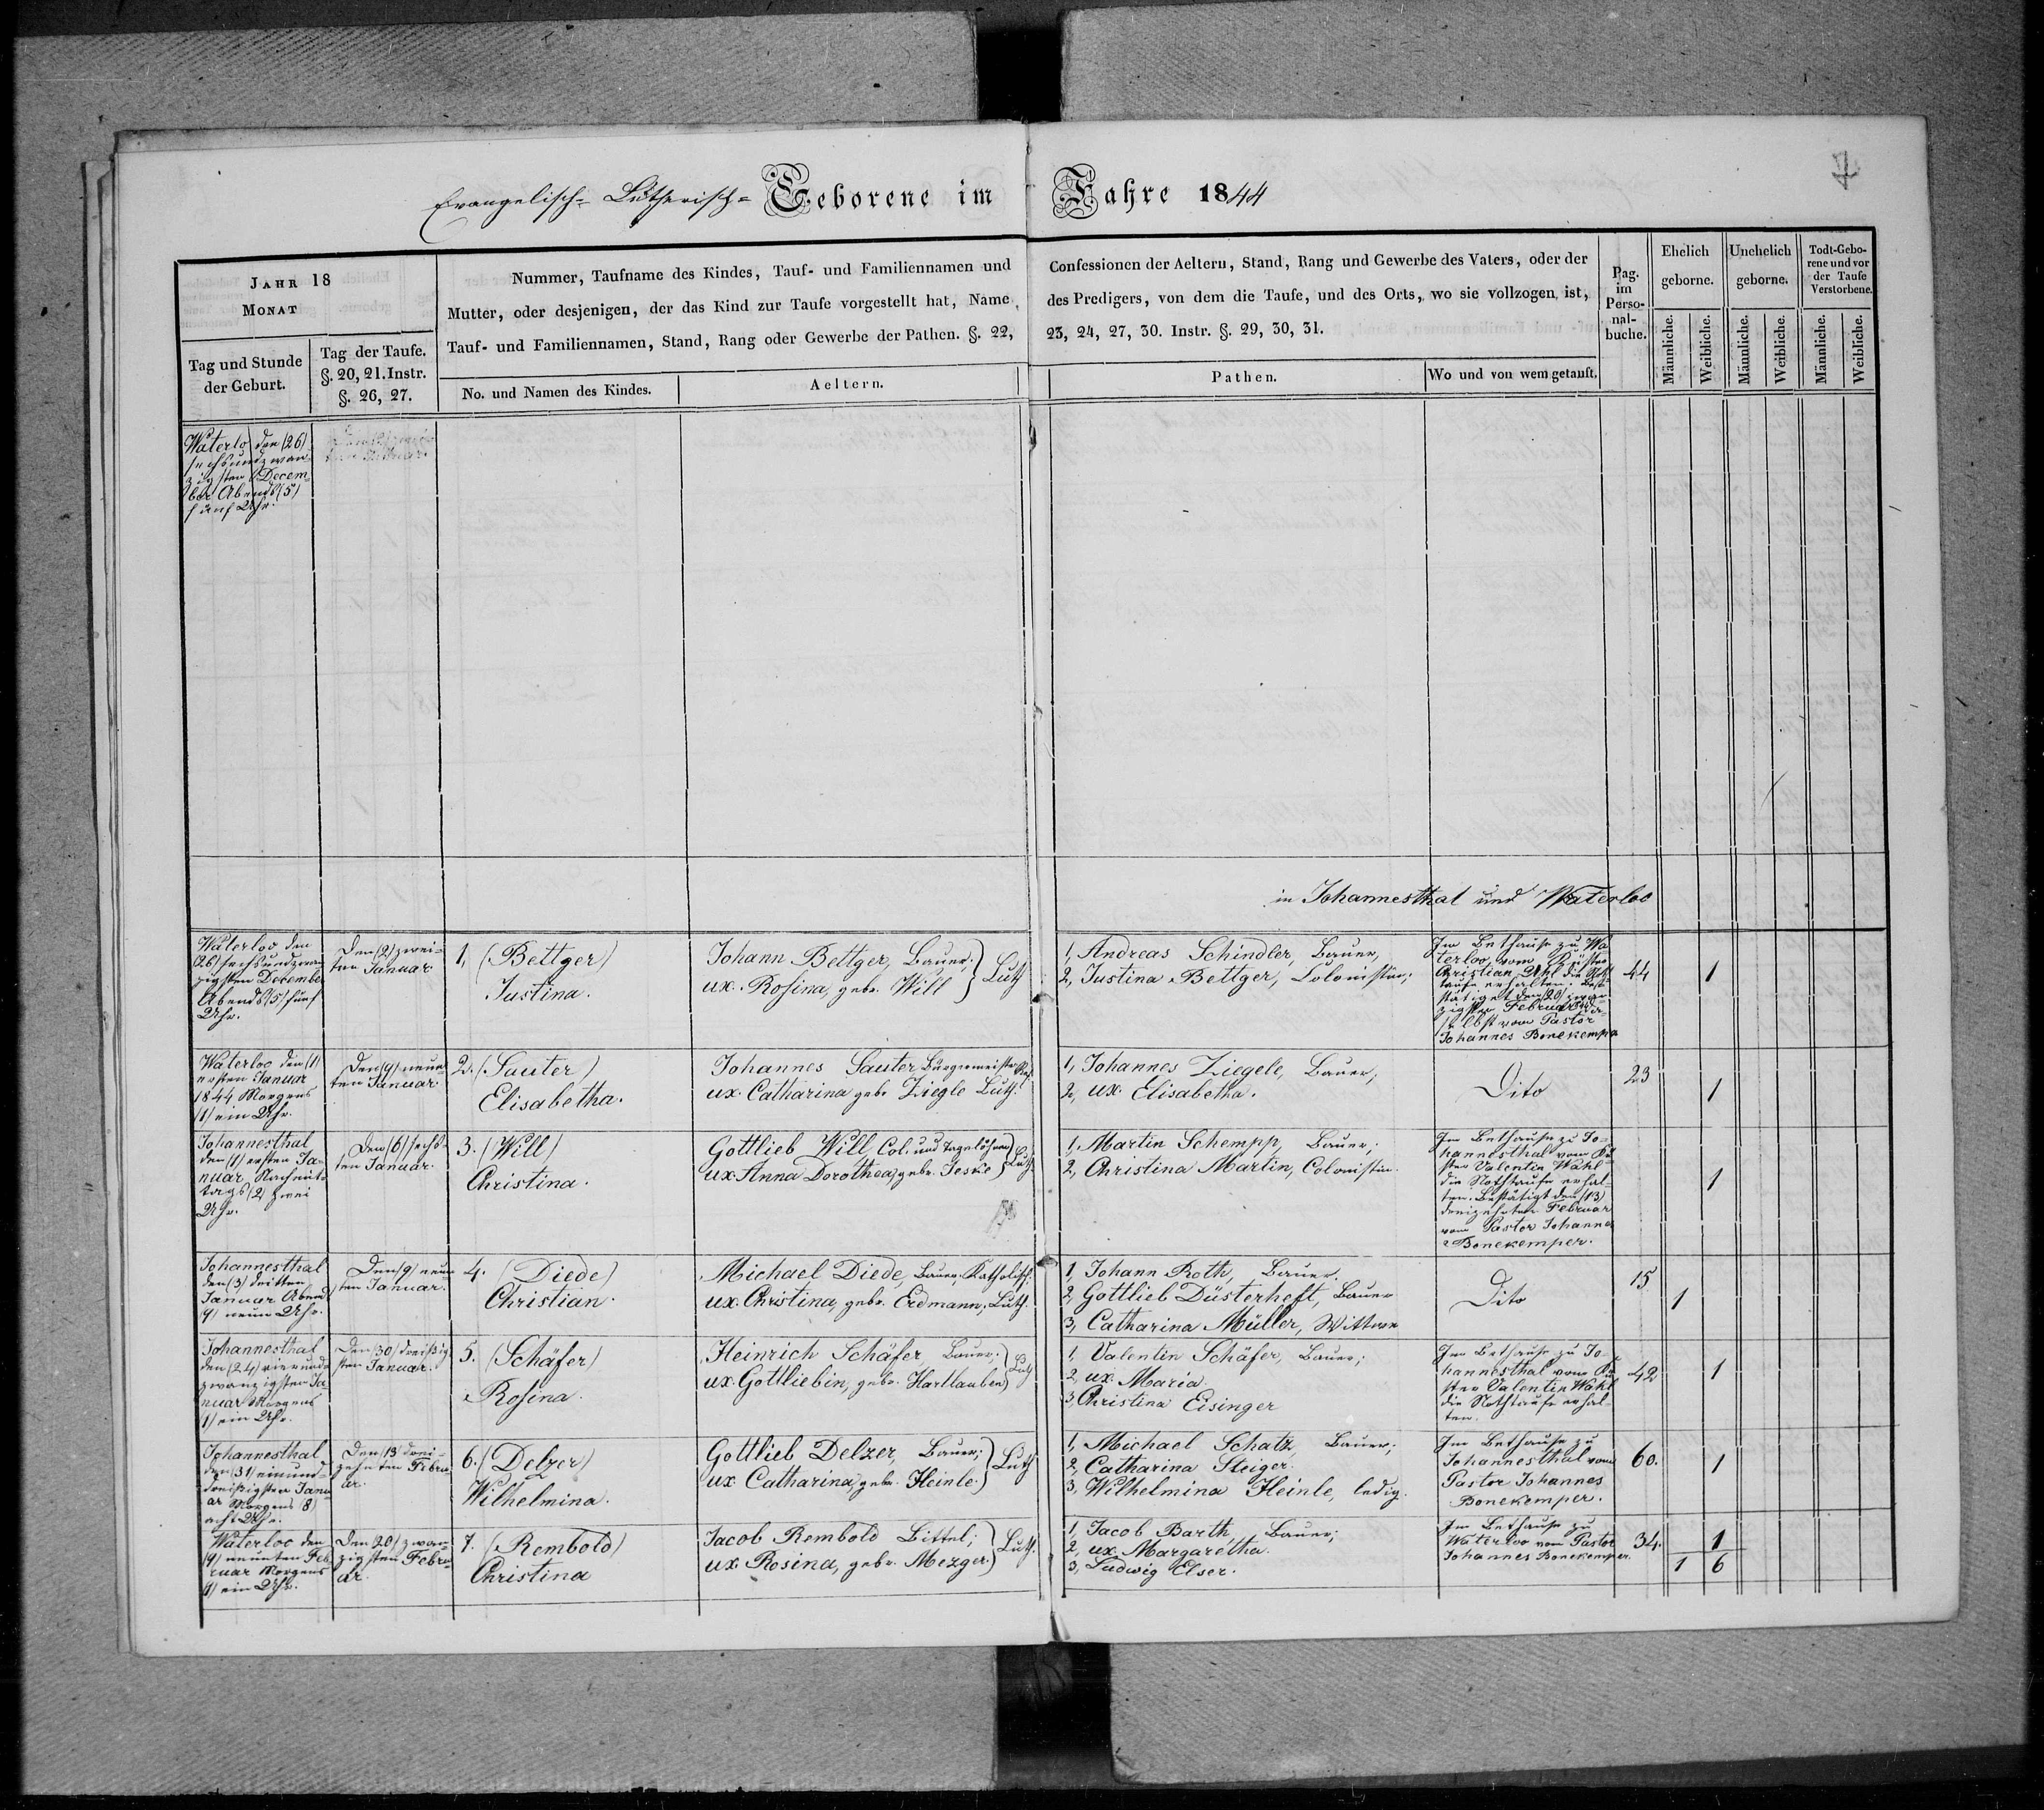 Evangelisch-Lutherisch-Geborene im Jahre 1844
JAHR 18
MONAT
Tag und Stunde
der Geburt.
Tag der Taufe.
§. 20, 21. Instr.
§. 26, 27.
Nummer, Taufname des Kindes, Tauf- und Familiennamen und
Mutter, oder desjenigen, der das Kind zur Taufe vorgestellt hat, Name,
Tauf- und Familiennamen, Stand, Rang oder Gewerbe der Pathen. §. 22,
No. und Namen des Kindes.
Aeltern.
Confessionen der Aeltern, Stand, Rang und Gewerbe des Vaters, oder der
des Predigers, von dem die Taufe, und des Orts, wo sie vollzogen ist,
23, 24, 27, 30. Instr. §. 29, 30, 31.
Pathen.
Wo und von wem getauft.
Pag.
im
Perso-
nal-
buche.
Ehelich
geborne.
Unehelich
geborne.
Todt-Gebo-
rene und vor
der Taufe
Verstorbene.
Männliche.
Weibliche.
Männliche.
Weibliche.
Männliche.
Weibliche.
Waterlo den (26)
sechsundzwan-
zigsten Decem-
ber Abends (5)
fünf Uhr.
in Johannesthal und Waterloo
Waterloo den
(26) sechsundzwan-
zigsten December
Abends (5) fünf
Uhr.
Den (2) zwei-
ten Januar
1, (Bettger)
Justina.
Johann Bettger, Bauer;
ux. Rosina, gebr. Will
Luth
1, Andreas Schindler, Bauer,
2, Justina Bettger, Colonistin;
Im Bethause zu Wa
terloo vom Küster
Christian Uhl die Noth
taufe erhalten. Bes
tätiget den (20) zwan
zigsten Februar
selbst vom Pastor
Johannes Bonekemper
44
1
Waterloo den (1)
ersten Januar
1844 Morgens
(1) ein Uhr.
Den (9) neun
ten Januar
2. (Sauter)
Elisabetha.
Johannes Sauter Bürgermeister Ref.
ux. Catharina gebr Ziegle Luth.
1, Johannes Ziegele, Bauer;
2, ux. Elisabetha.
Dito
23
1
Johannesthal
den (1) ersten Ja-
nuar Nachmit-
tags (2) zwei
Uhr.
Den (6) sechs-
ten Januar.
3. (Will)
Christina.
Gottlieb Will, Col. und Tagelöhner
ux. Anna Dorothea, gebr. Jeske
Luth.
1, Martin Schempp, Bauer;
2, Christina Martin, Colonistin.
Im Bethause zu Jo-
hannesthal vom Kü-
ster Valentin Wahl
die Nothtaufe erhal-
ten. Bestätigt den (13)
dreizehnten Februar
vom Pastor Johannes
Bonekemper.
1
Johannesthal
den (3) dritten
Januar Abend
(9) neun Uhr.
Den (9) neun
ten Januar.
4. (Diede)
Christian.
Michael Diede, Bauer. Katholisch.
ux. Christina, gebr. Erdmann, Luth.
1, Johann Roth, Bauer.
2, Gottlieb Düsterheft, Bauer
3, Catharina Müller, Wittwe
Dito
15
1
Johannesthal
den (24) vierund-
zwanzigsten Ja-
nuar Morgens
(1) ein Uhr.
Den (30) dreißig
sten Januar.
5. (Schäfer)
Rosina.
Heinrich Schäfer, Bauer;
ux. Gottliebin, gebr. Hartlauben
Luth
1, Valentin Schäfer, Bauer;
2, ux. Maria.
3, Christina Eisinger
Im Bethause zu Jo-
hannesthal vom Kü
ster Valentin Wahl
die Nothtaufe erhal-
ten.
42
1
Johannesthal
den (31) einund-
dreißigsten Janu-
ar Morgens (8)
acht Uhr.
Den (13) drei-
zehnten Febru-
ar.
6. (Delzer)
Wilhelmina.
Gottlieb Delzer, Bauer;
ux. Catharina, gebr. Heinle.
Luth
1, Michael Schatz, Bauer;
2, Catharina Steiger.
3, Wilhelmina Heinle, ledig.
Im Bethause zu
Johannesthal vom
Pastor Johannes
Bonekemper.
60.
1
Waterloo den
(9) neunten Feb-
ruar Morgens
(1) ein Uhr.
Den (20) zwan
zigsten Febru-
ar.
7. (Rembold)
Christina
Jacob Rembold Bittel;
ux. Rosina, gebr. Mezger.
Luth.
1, Jacob Barth, Bauer;
2, ux. Margaretha.
3, Ludwig Elser.
Im Bethause zu
Waterloo vom Pastor
Johannes Bonekemper.
34.
1
1 6